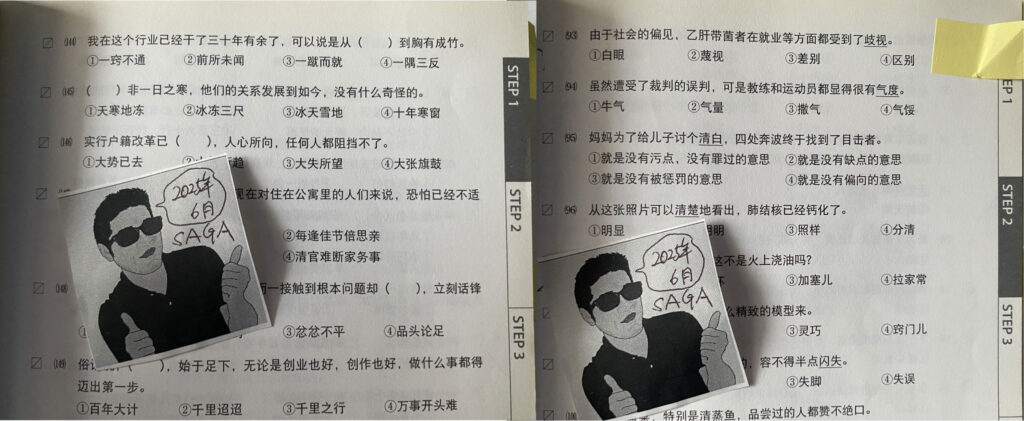 (144) 我在这个行业已经干了三十年有余了，可以说是从（ ）到胸有成竹。
①一窍不通 ②前所未闻 ③一蹴而就 ④一隅三反
(145) （ ）非一日之寒，他们的关系发展到如今，没有什么奇怪的。
①天寒地冻 ②冰冻三尺 ③冰天雪地 ④十年寒窗
(146) 实行户籍改革已（ ），人心所向，任何人都阻挡不了。
①大势已去 ② ③大失所望 ④大张旗鼓
现在对住在公寓里的人们来说，恐怕已经不适
②每逢佳节倍思亲
④清官难断家务事
一接触到根本问题却（ ），立刻话锋
③忿忿不平 ④品头论足
(149) 俗 ），始于足下，无论是创业也好，创作也好，做什么事都得
迈出第一步。
①百年大计 ②千里迢迢 ③千里之行 ④万事开头难
2025年
6月
SAGA
STEP 1
STEP 2
STEP 3
(93) 由于社会的偏见，乙肝带菌者在就业等方面都受到了歧视。
①白眼 ②蔑视 ③差别 ④区别
(94) 虽然遭受了裁判的误判，可是教练和运动员都显得很有气度。
①牛气 ②气量 ③撒气 ④气馁
(95) 妈妈为了给儿子讨个清白，四处奔波终于找到了目击者。
①就是没有污点，没有罪过的意思 ②就是没有缺点的意思
③就是没有被惩罚的意思 ④就是没有偏向的意思
(96) 从这张照片可以清楚地看出，肺结核已经钙化了。
①明显 明 ③照样 ④分清
这不是火上浇油吗？
③加塞儿 ④拉家常
么精致的模型来。
③灵巧 ④窍门儿
，容不得半点闪失。
③失脚 ④失误
(100) 特别是清蒸鱼，品尝过的人都赞不绝口。
2025年
6月
SAGA
STEP 2
STEP 3